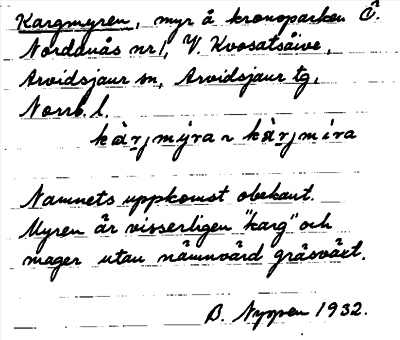 Kargmyren, myr å kronoparken Ö.
Nordanås nr 1, V. Kvosatsåive,
Arvidsjaur sn, Arvidsjaur tg,
Norrb. l.
Namnets uppkomst obekant.
Myren är visserligen "karg" och
mager utan nämnvärd gräsväxt.
B. Nygren 1932.